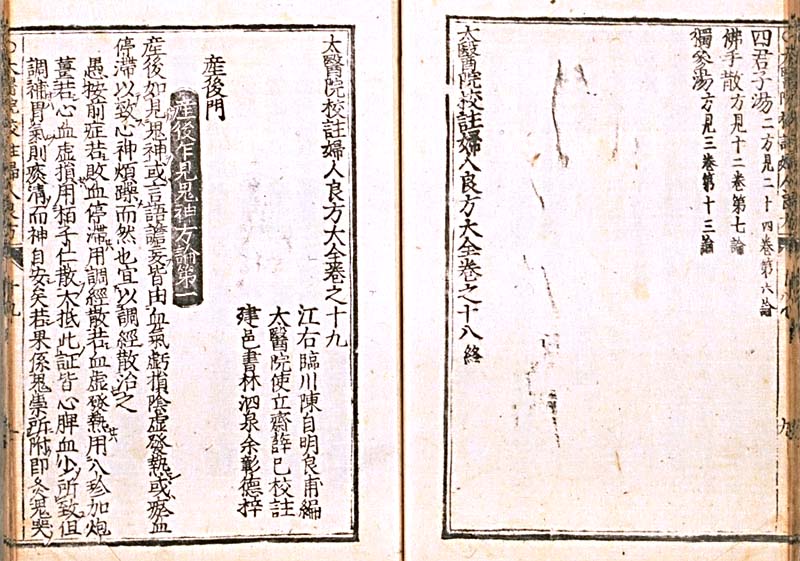 四君子湯二方見二十四卷第六論
佛手散方見十二卷第七論
獨參湯方見三卷第十三論
太醫院校註婦人良方大全卷之十八終
太醫院校註婦人良方大全卷之十九
江右臨川陳自明良甫編
太醫院使立齋薛己校註
建邑書林泗泉余彰德梓
産後門
産後乍見鬼神方論第一
産後如見鬼神或言語譫妄皆由血氣虧損陰虚發熱或瘀血
停滯以致心神煩躁而然也宜以調經散治之
愚按前症若敗血停滯用調經散若血虚發熱用八珍加炮
薑若心血虚損用栢子仁散大抵此証皆心脾血少所致但
調補胃氣則痰清而神自安矣若果係鬼祟所附即灸鬼哭